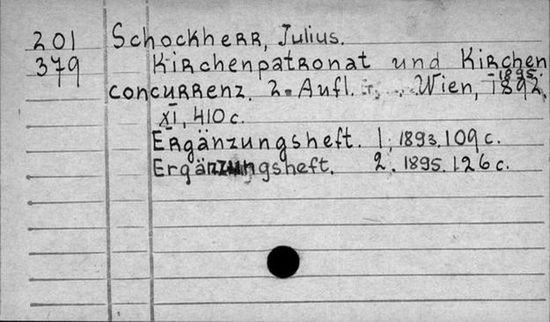 201 Schockherr, Julius.
379 Kirchenpatronat und Kirchen
concurrenz. 2. Aufl. Wien, 1892-1895.
XI, 410 c.
Ergänzungsheft. 1, 1893. 109 c.
Ergänzungsheft. 2. 1895. 126 c.